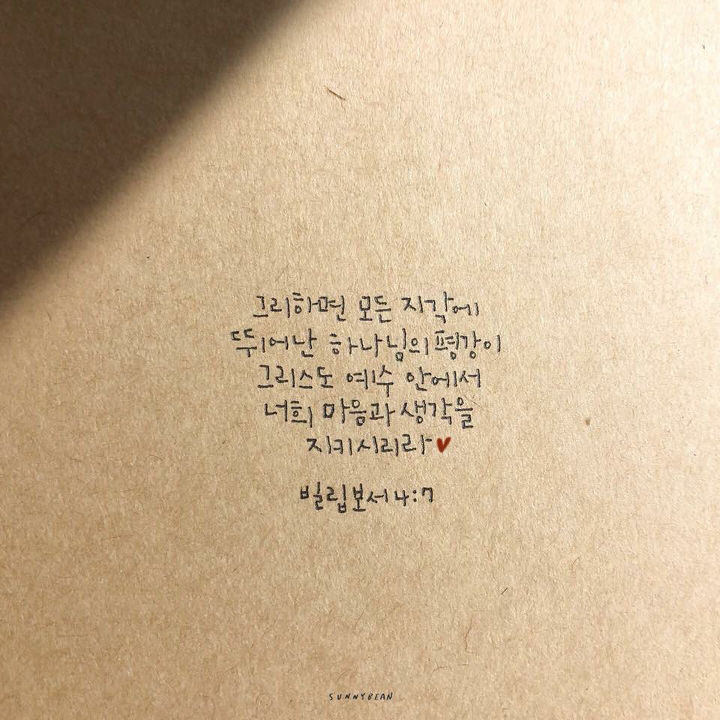 그리하면 모든 지각에
뛰어난 하나님의 평강이
그리스도 예수 안에서
너희 마음과 생각을
지키시리라♥
빌립보서 4:7
SUNNYBEAN